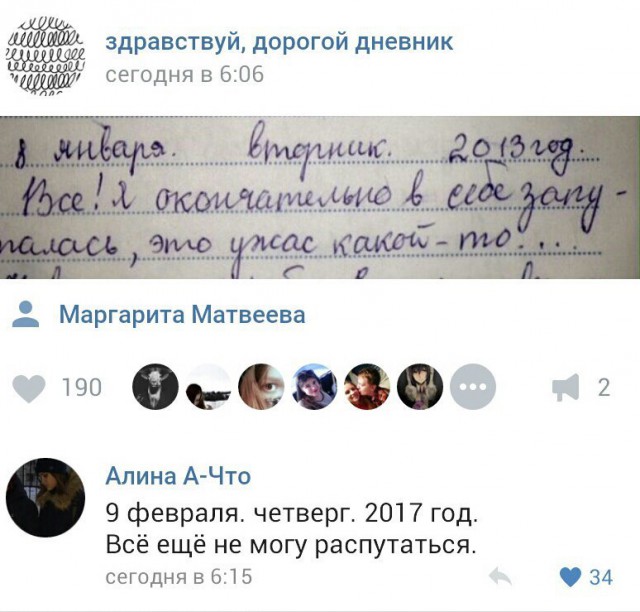 здравствуй, дорогой дневник
сегодня в 6:06
8 января. вторник. 2013 год.
Все! Я окончательно в себе запу-
талась, это ужас какой-то....
Маргарита Матвеева
190
2
Алина А-Что
9 февраля. четверг. 2017 год.
Всё ещё не могу распутаться.
сегодня в 6:15
34